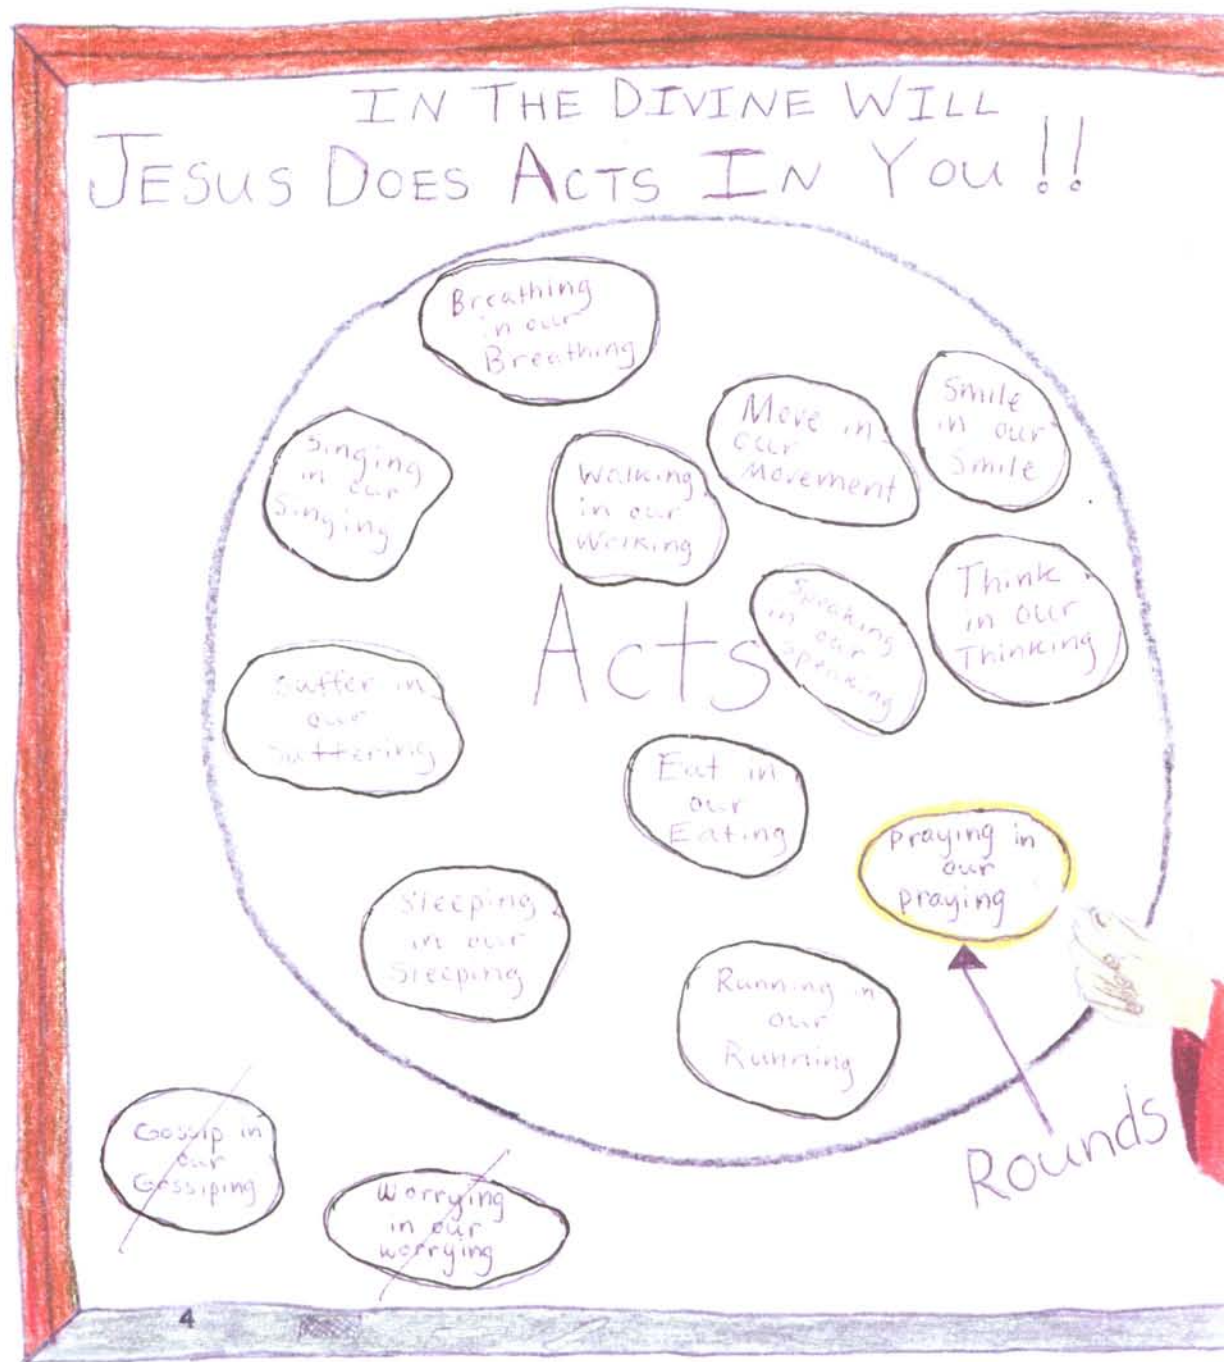 IN THE DIVINE WILL
JESUS DOES ACTS IN YOU!!
Breathing
in our
Breathing
Singing
in our
Singing
Walking
in our
Walking
Move in
our
Movement
Smile
in our
Smile
Acts
Speaking
in our
Speaking
Think
in our
Thinking
Suffer in
our
Suffering
Eat in
our
Eating
praying in
our
praying
Sleeping
in our
Sleeping
Running in
our
Running
Rounds
Gossip in
our
Gossiping
Worrying
in our
worrying
4